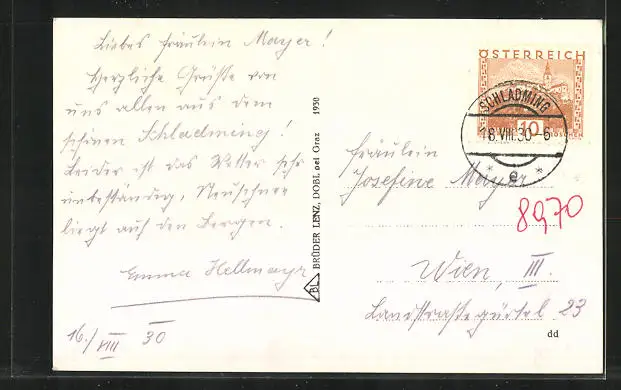 Liebes Fräulein Mayer!
Herzliche Grüsse von
uns allen aus dem
schönen Schladming!
Leider ist das Wetter sehr
unbeständig, Neuschnee
liegt auf den Bergen.
Emma Hellmayr
16./VIII 30
BL BRÜDER LENZ, DOBL bei Graz 1930
ÖSTERREICH
10
SCHLADMING
18.VIII.30-6
* e *
Fräulein
Josefine Mayer
8970
Wien, III.
Landstraßegürtel 23
dd